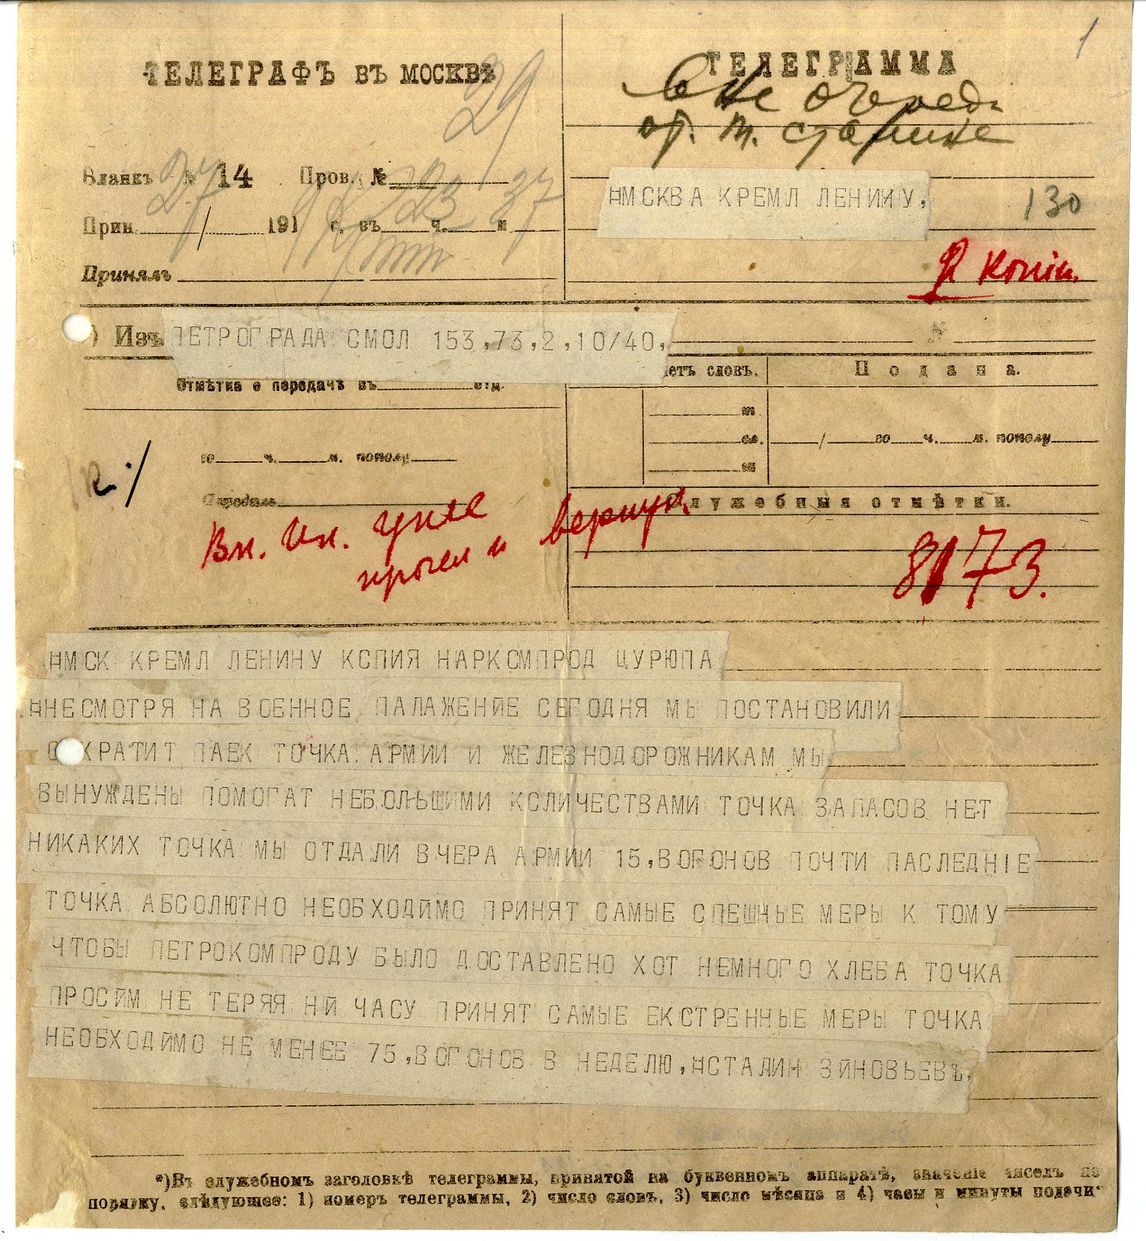 1
ТЕЛЕГРАФЪ ВЪ МОСКВѢ
ТЕЛЕГРАММА
29
вне очередь
от т. Сталина
Бланкъ № 14 Пров. №
27
23 37
НМСКВА КРЕМЛ ЛЕНИНУ,
130
Прин. / 191 г. въ ч. м
Принялъ
копія.
) Изъ ПЕТРОГРАДА СМОЛ 153,73,2,10/40,
№
Отмѣтка о передачѣ въ отд.
четъ словъ.
Подана.
/ го ч. м. пополу
го ч. м. пополу
Передалъ
Служебныя отмѣтки.
Вл. Ил. уже
прочел и вернул
8173.
НМСК КРЕМЛ ЛЕНИНУ КСПИЯ НАРКСМПРОД ЦУРЮПА
НЕСМОТРЯ НА ВОЕННОЕ ПАЛАЖЕНИЕ СЕГОДНЯ МЫ ПОСТАНОВИЛИ
СОКРАТИТ ПАЕК ТОЧКА АРМИИ И ЖЕЛЕЗНОДОРОЖНИКАМ МЫ
ВЫНУЖДЕНЫ ПОМОГАТ НЕБОЛЬШИМИ КСЛИЧЕСТВАМИ ТОЧКА ЗАПАСОВ НЕТ
НИКАКИХ ТОЧКА МЫ ОТДАЛИ ВЧЕРА АРМИИ 15,ВОГОНОВ ПОЧТИ ПАСЛЕДНІЕ
ТОЧКА АБСОЛЮТНО НЕОБХОДЙМО ПРИНЯТ САМЫЕ СПЕШНЫЕ МЕРЫ К ТОМУ
ЧТОБЫ ПЕТРОКОМПРОДУ БЫЛО ДОСТАВЛЕНО ХОТ НЕМНОГО ХЛЕБА ТОЧКА
ПРОСЙМ НЕ ТЕРЯЯ НЙ ЧАСУ ПРИНЯТ САМЫЕ ЕКСТРЕННЫЕ МЕРЫ ТОЧКА
НЕОБХОДЙМО НЕ МЕНЕЕ 75,ВОГОНОВ В НЕДЕЛЮ,НСТАЛИН ЗЙНОВЬЕВЪ,
*)Въ служебномъ заголовкѣ телеграммы, принятой на буквенномъ аппаратѣ, значеніе чиселъ по
порядку, слѣдующее: 1) номеръ телеграммы, 2) число словъ, 3) число мѣсяца и 4) часы и минуты подачи.